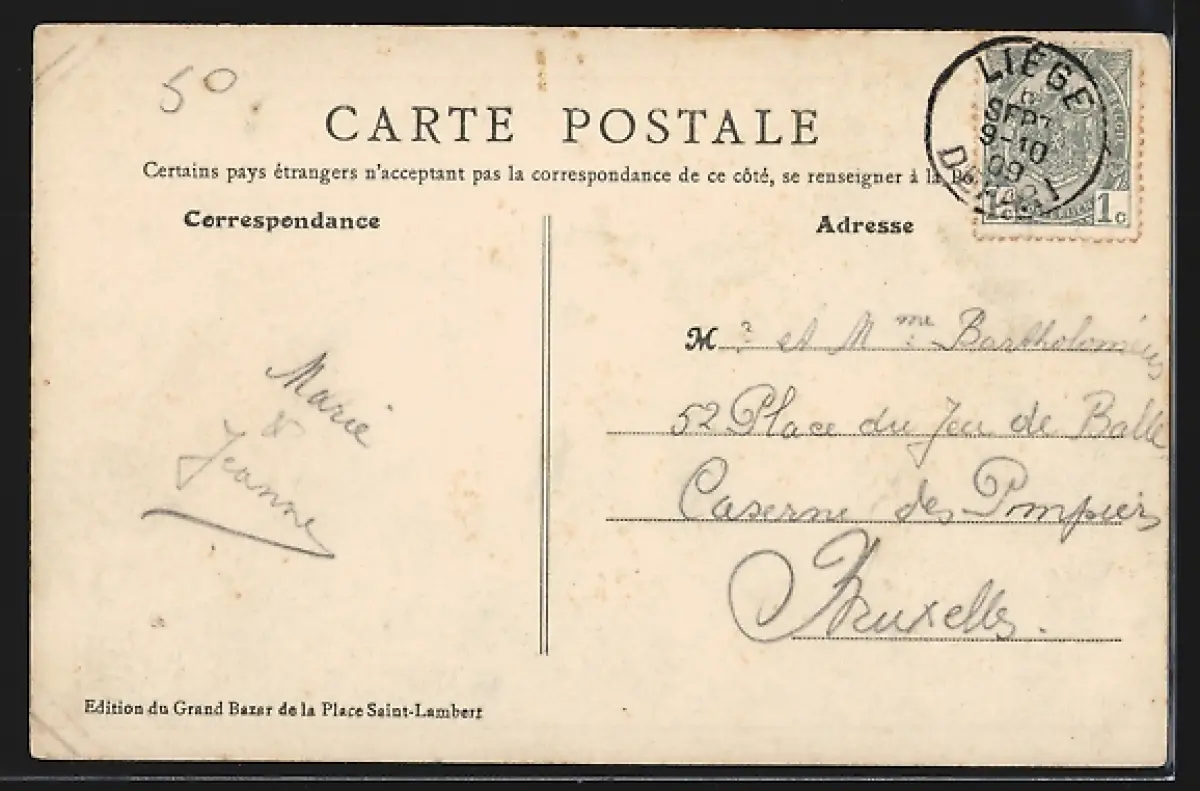 50
CARTE POSTALE
Certains pays étrangers n'acceptant pas la correspondance de ce côté, se renseigner à la
Correspondance
Adresse
LIÉGE
SEPT
9-10
09
1c
M.r et M.me Bartholoméus
52 Place du Jeu de Balle
Caserne des Pompiers
Bruxelles.
Marie
&
Jeanne
Edition du Grand Bazar de la Place Saint-Lambert